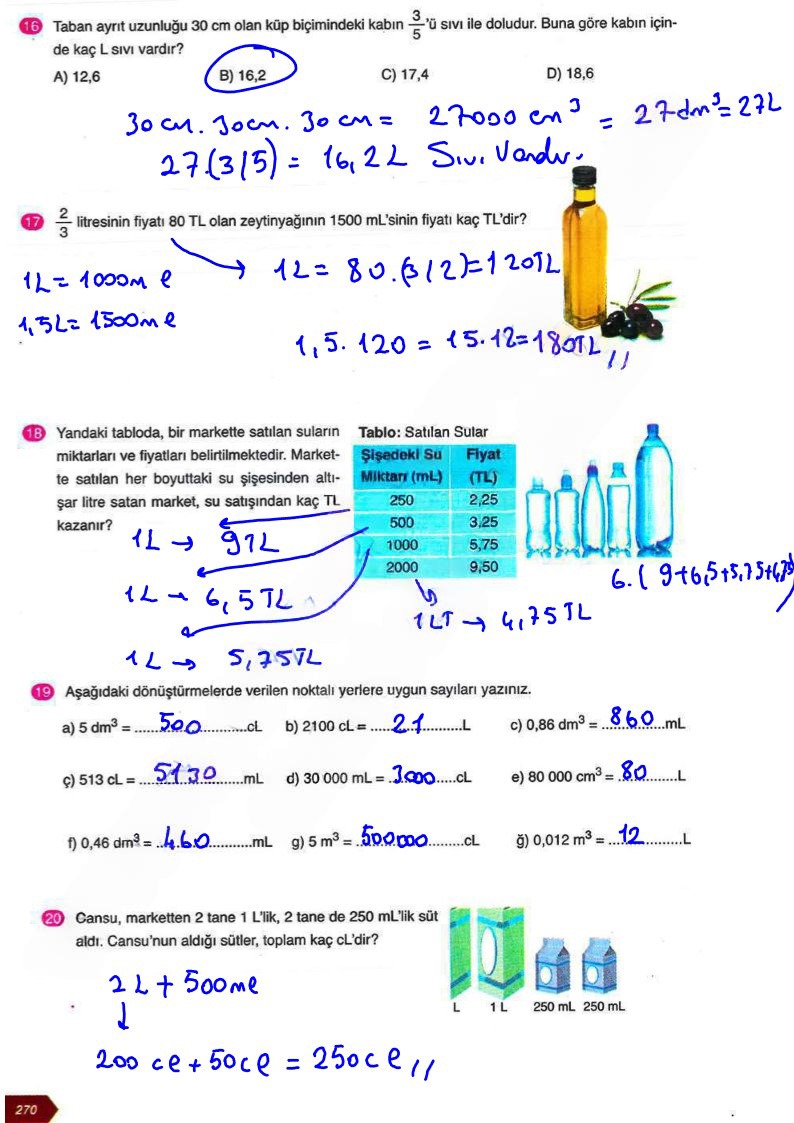 16 Taban ayrıt uzunluğu 30 cm olan küp biçimindeki kabın 3/5'ü sıvı ile doludur. Buna göre kabın için-
de kaç L sıvı vardır?
A) 12,6 B) 16,2 C) 17,4 D) 18,6
30 cm. 30cm. 30 cm = 27000 cm³ = 27dm³=27L
27.(3/5) = 16,2L Sıvı Vardır.
17 2/3 litresinin fiyatı 80 TL olan zeytinyağının 1500 mL'sinin fiyatı kaç TL'dir?
1L = 1000mℓ
1L = 80.(3/2)=120TL
1,5L= 1500mℓ
1,5. 120 = 15.12=180TL //
18 Yandaki tabloda, bir markette satılan suların
miktarları ve fiyatları belirtilmektedir. Market-
te satılan her boyuttaki su şişesinden altı-
şar litre satan market, su satışından kaç TL
kazanır?
Tablo: Satılan Sular
Şişedeki Su Miktarı (mL) Fiyat (TL)
250 2,25
500 3,25
1000 5,75
2000 9,50
1L → 9TL
1L → 6,5TL
1L → 5,75TL
1LT → 4,75TL
6.( 9+6,5+5,75+4,75)
19 Aşağıdaki dönüştürmelerde verilen noktalı yerlere uygun sayıları yazınız.
a) 5 dm³ = ......500......cL b) 2100 cL = ......21......L c) 0,86 dm³ = ...860...mL
ç) 513 cL = ...5130...mL d) 30 000 mL = ..3000.....cL e) 80 000 cm³ = ..80......L
f) 0,46 dm³ = ..460.........mL g) 5 m³ = ..500000.......cL ğ) 0,012 m³ = ...12.........L
20 Cansu, marketten 2 tane 1 L'lik, 2 tane de 250 mL'lik süt
aldı. Cansu'nun aldığı sütler, toplam kaç cL'dir?
L 1 L 250 mL 250 mL
2L + 500mℓ
200 cℓ + 50cℓ = 250cℓ //
270